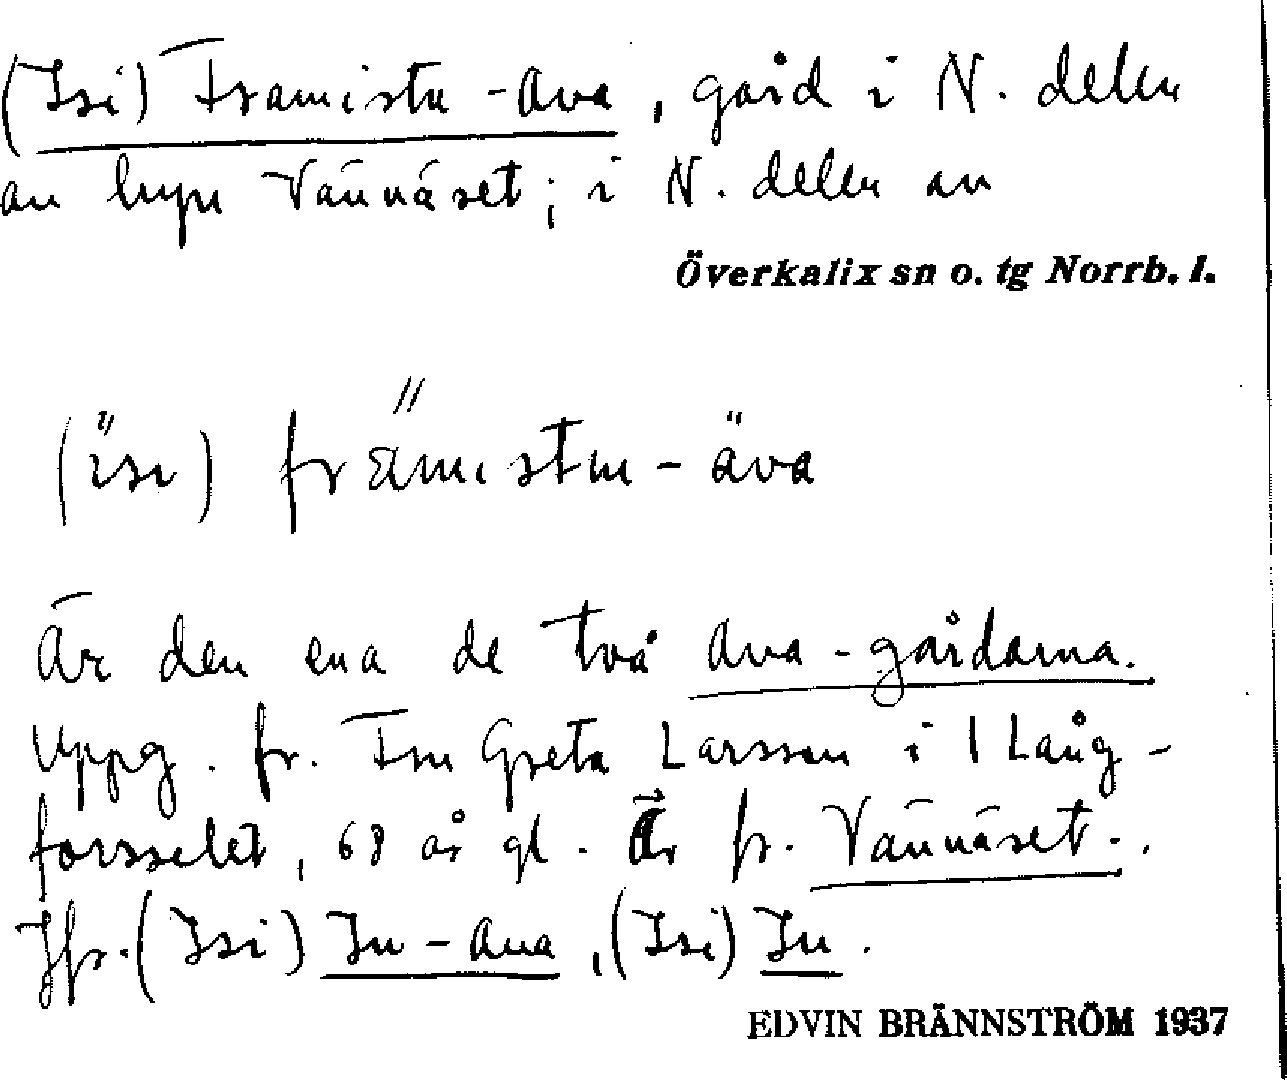 (Isi) Framista-Ava, gård i N. delen
av byn Vännäset; i N. delen av
Överkalix sn o. tg Norrb. l.
(isi) främistm-äva
Är den ena de två Ava-gårdarna.
Uppg. fr. Fru Greta Larsson i Lång-
forsselet, 68 år gl. Är fr. Vännäset.
Jfr. (Isi) In-Ava, (Isi) In.
EDVIN BRÄNNSTRÖM 1937